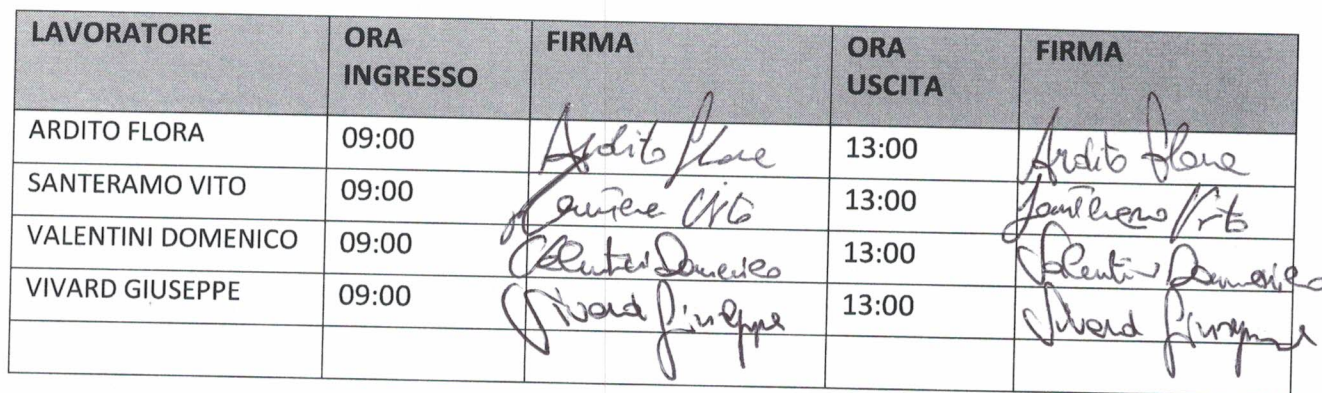 LAVORATORE ORA INGRESSO FIRMA ORA USCITA FIRMA
ARDITO FLORA 09:00 Ardito Flora 13:00 Ardito Flora
SANTERAMO VITO 09:00 Vito 13:00 Santeramo Vito
VALENTINI DOMENICO 09:00 Valentini Domenico 13:00 Valentini Domenico
VIVARD GIUSEPPE 09:00 Vivard Giuseppe 13:00 Vivard Giuseppe